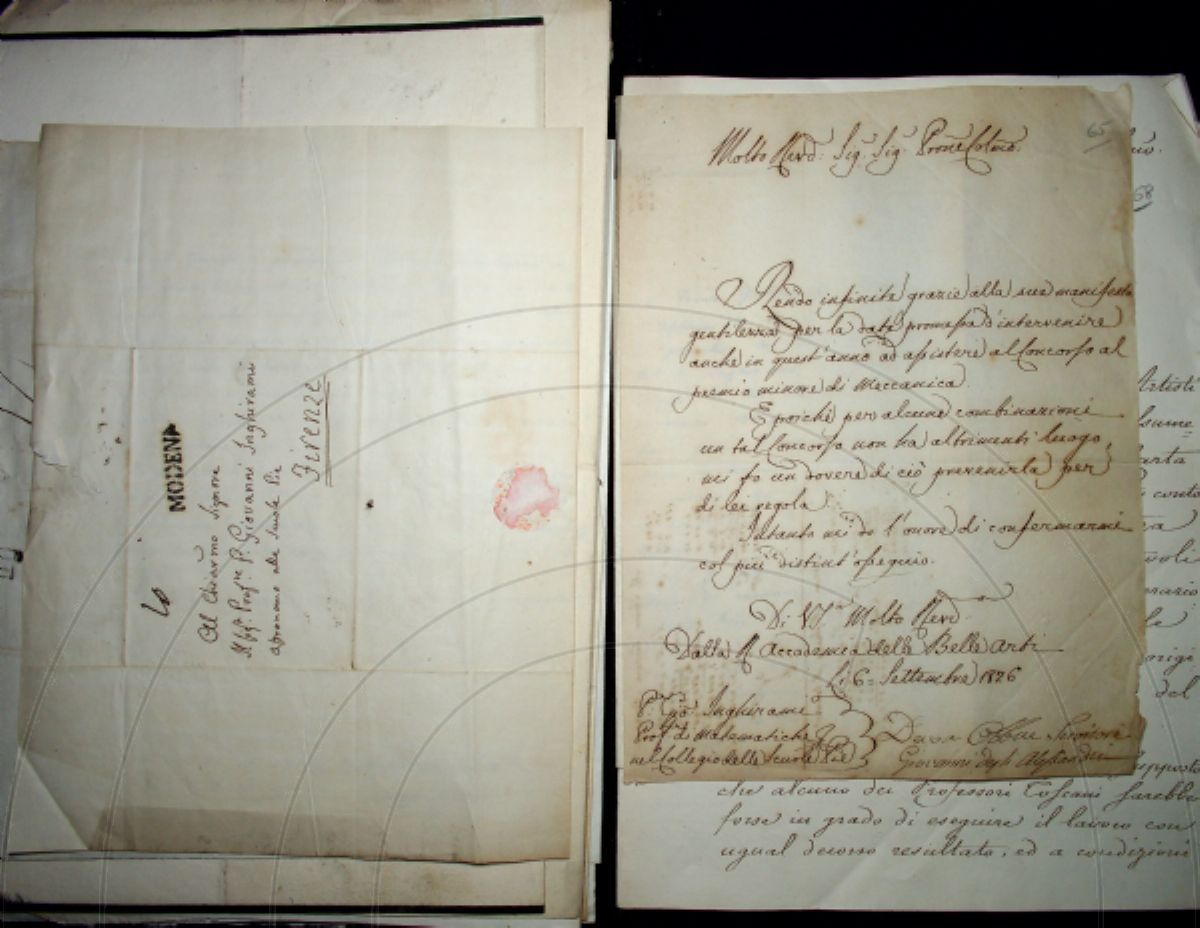 MODENA
10
Al Chiarmo Signore
Il Sig.r Profre P. Giovanni Inghirami
astronomo alle Scuole Pie
Firenze
65
Molto Revd: Sig.r Sig.r Prone Colmo.
Rendo infinite grazie alla sua manifesta
gentilezza per la data promessa d'intervenire
anche in quest'anno ad assistere al Concorso al
premio minore di Meccanica.
E poichè per alcune combinazioni
un tal Concorso non ha altrimenti luogo,
mi fo un dovere di ciò prevenirla per
di lei regola.
Intanto mi do l'onore di confermarmi
col più distint'ossequio.
Di V.S. Molto Revd.
Dalla R. Accademia delle Belle Arti
Li 6 = Settembre 1826
P. Gio: Inghirami
Prof. di Matematiche
nel Collegio delle Scuole Pie
Devmo Obbmo Servitore
Giovanni degli Alessandri
68
Artisti
carta
conto
del
che alcuno dei Professori Toscani sarebbe
forse in grado di eseguire il lavoro con
ugual decoroso resultato, ed a condizioni